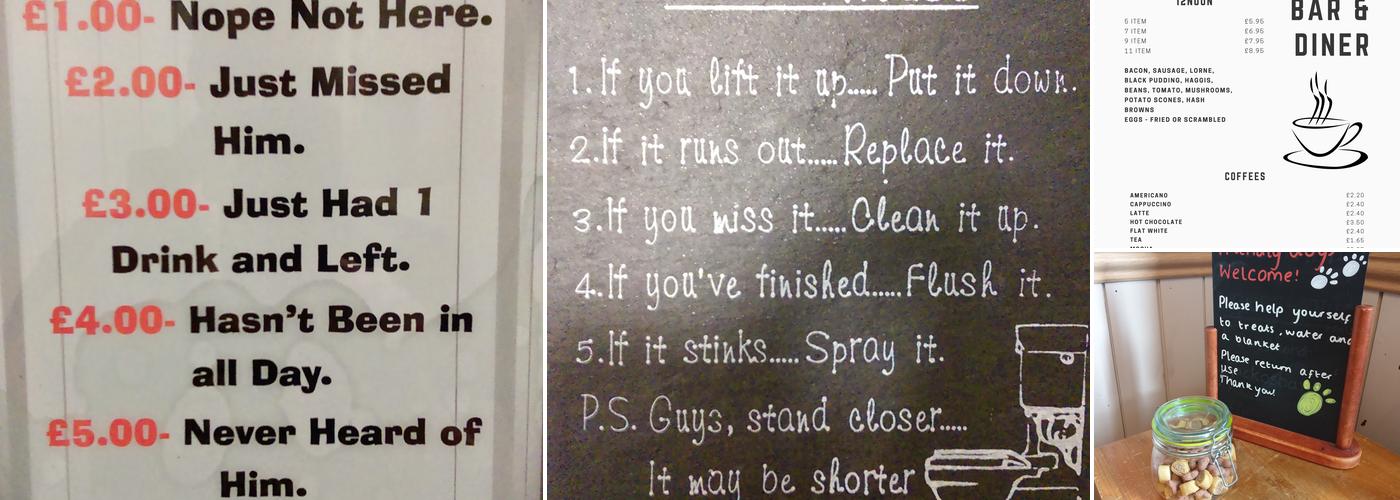 £1.00- Nope Not Here.
£2.00- Just Missed
Him.
£3.00- Just Had 1
Drink and Left.
£4.00- Hasn't Been in
all Day.
£5.00- Never Heard of
Him.
1. If you lift it up..... Put it down.
2. If it runs out..... Replace it.
3. If you miss it..... Clean it up.
4. If you've finished..... Flush it.
5. If it stinks..... Spray it.
P.S. Guys, stand closer.....
It may be shorter
12NOON
5 ITEM £5.95
7 ITEM £6.95
9 ITEM £7.95
11 ITEM £8.95
BACON, SAUSAGE, LORNE,
BLACK PUDDING, HAGGIS,
BEANS, TOMATO, MUSHROOMS,
POTATO SCONES, HASH
BROWNS
EGGS - FRIED OR SCRAMBLED
BAR &
DINER
COFFEES
AMERICANO £2.20
CAPPUCCINO £2.40
LATTE £2.40
HOT CHOCOLATE £3.50
FLAT WHITE £2.40
TEA £1.65
Welcome!
Please help yourself
to treats, water and
a blanket
Please return after
use
Thank you!